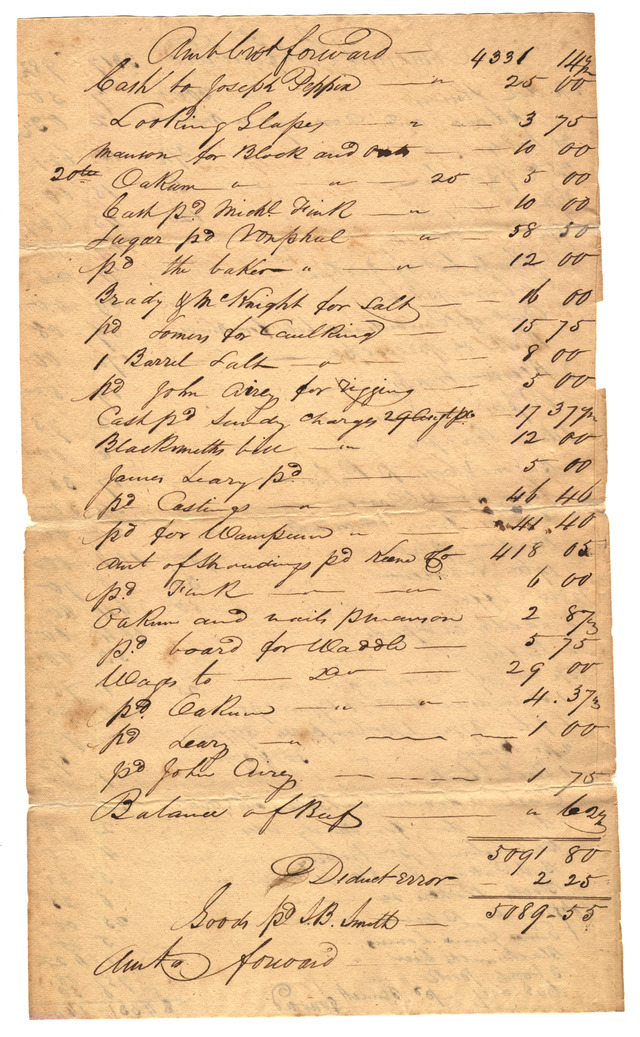 Amt brot forward — 4331 14½
Cash to Joseph Peppin — " 25 00
Looking Glasses — " — 3 75
Manson for Block and — 10 00
20th Oakum " " — 25 — 5 00
Cash pd Michl Fink — " 10 00
Sugar pd Vonphul " 58 50
pd the baker " — " — 12 00
Brady & McKnight for Salt 16 00
pd Somers for Caulking 15 75
1 Barrel Salt — " — 8 00
pd John Airey for rigging 5 00
Cash pd Sundry charges 29 Augt 17 37½
Blacksmiths bill — " 12 00
James Leary pd — 5 00
pd Castings — " — 46 46
pd for Wampum " — 41.40
amt of Shroudings pd Keene & Co 418 05
pd Fink — " — " 6 00
Oakum and nails p manson — 2 87½
pd board for Waddle — 5 75
Wages to — Do — 29 00
pd Oakum " — " — 4.37½
pd Leary — " — 1 00
pd John Airey — 1 75
Balance of Beef — " 62½
5091 80
Deduct Error — 2 25
5089-55
Goods pd J.B. Smith —
Amt forward —